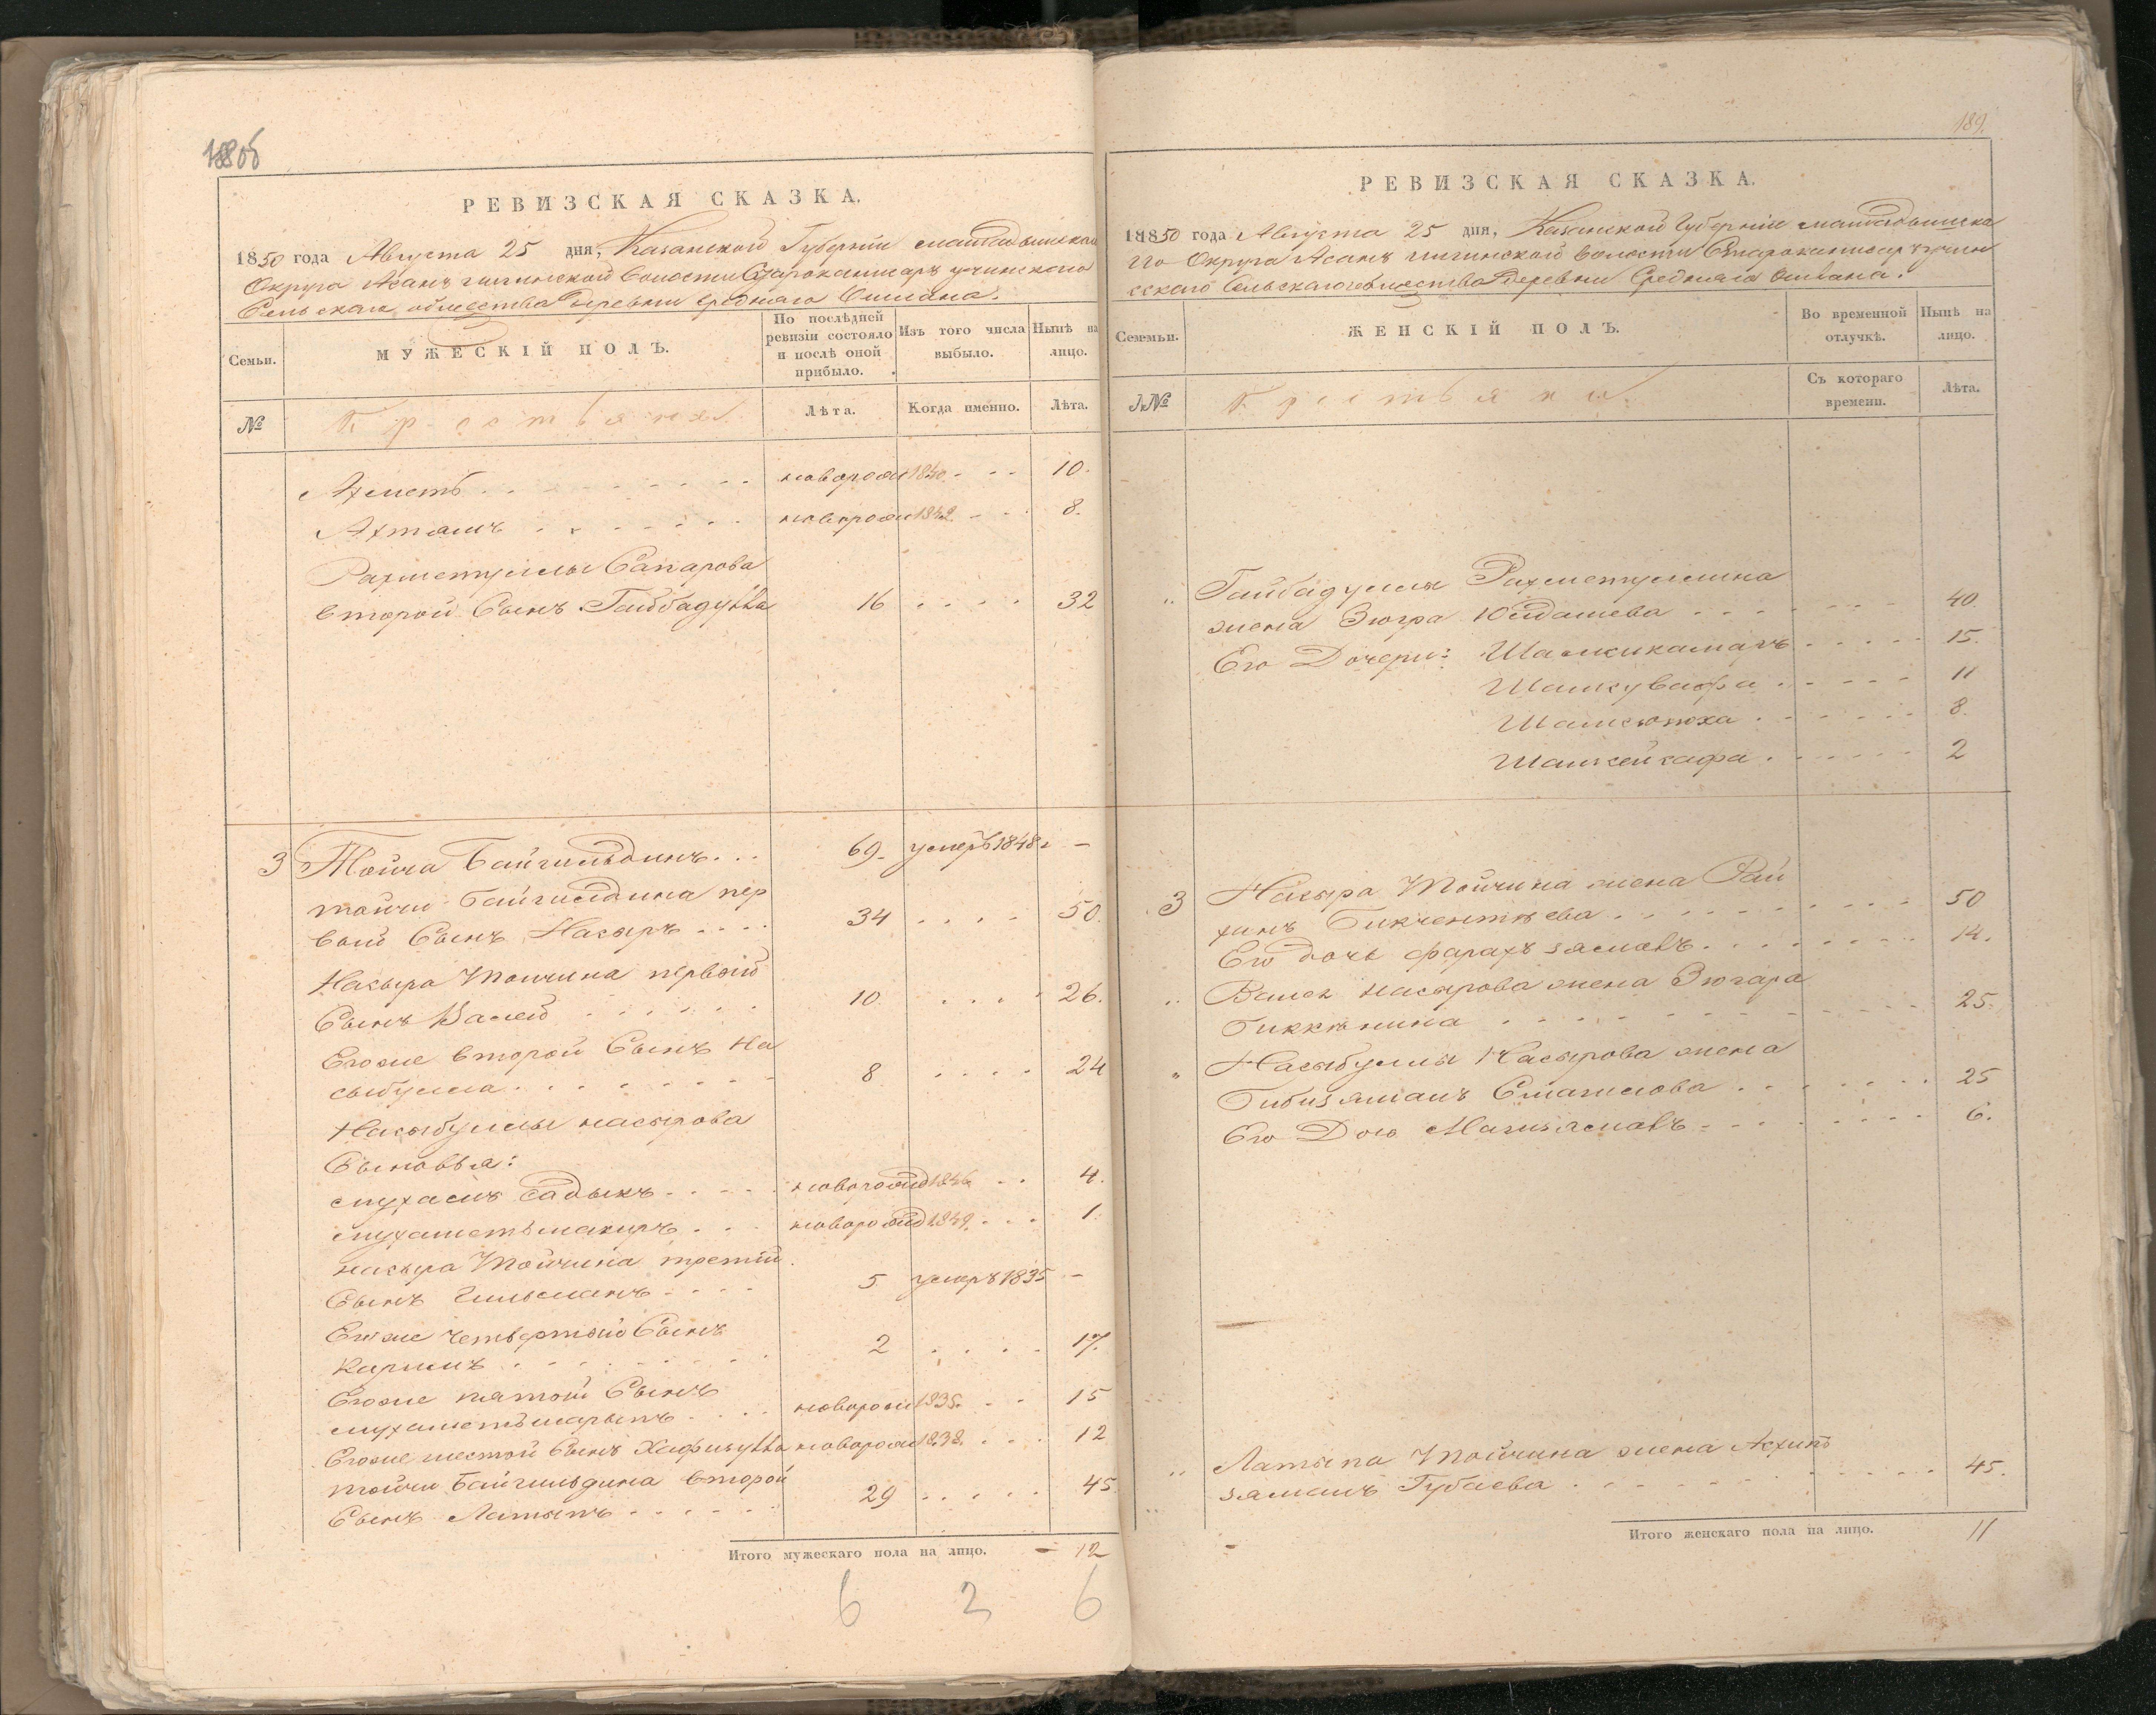 188об
РЕВИЗСКАЯ СКАЗКА.
1850 года Августа 25 дня, Казанской Губернiи мамадышскаго
Округа Асанъ волости
Сельскаго общества Деревни Средняго Ошлана.
Семьи.
МУЖЕСКIЙ ПОЛЪ.
По послѣдней ревизiи состояло и послѣ оной прибыло.
Изъ того числа выбыло.
Нынѣ на лицо.
№
Крестьяна
Лѣта.
Когда именно.
Лѣта.
Ахметъ новорож 1840 10.
Ахтямъ новорож 1842 8.
Рахметуллы Сапарова
второй Сынъ Гайбадулла 16 32
3 Тойча Байгильдинъ 69 умеръ 1848 г –
тойчи Байгилдина пер
вый Сынъ Насыръ 34 50.
Насыра Тойчина первый
Сынъ Валей 10. 26.
Егоже второй Сынъ На
сыбулла 8 24
Насыбуллы насырова
Сыновья:
мухамъ садыкъ новорожд 1846 4.
мухаметь новорожд 1849. 1.
насыра Тойчина третiй
Сынъ Гильманъ 5 умеръ 1835 –
Егоже четвертый Сынъ
Каримъ 2 17.
Егоже пятой Сынъ
мухаметьшарыпъ новорож 1835. 15
Егоже шестой Сынъ Хафизулла новорож 1838. 12
тойчи Байгильдина второй
Сынъ Латыпъ 29 45.
Итого мужескаго пола на лицо. – 12
6 2 6
189.
РЕВИЗСКАЯ СКАЗКА.
1850 года Августа 25 дня, Казанской Губернiи мамадышска
го Округа Асанъ волости
сскаго Сельскаго общества Деревни Средняго Ошлана.
Семьи.
ЖЕНСКIЙ ПОЛЪ.
Во временной отлучкѣ.
Нынѣ на лицо.
№
Крестьяна
Съ котораго времени.
Лѣта.
„ Гайбадуллы Рахметуллина
жена Зюгра Юлдашева 40.
Его Дочери: Шамсикамаръ 15.
Шамсувафа 11
8.
2
3 Насыра Тойчина жена Рай
ханъ Бикчентѣева 50
Его дочь фарахъзямалъ 14.
„ Валея насырова жена Зюгара
Биккѣнина 25.
„ Насыбуллы Насырова жена
Бибизяманъ Смаилова 25
Его Дочь Магизямалъ 6.
„ Латыпа Тойчина жена Асхипъ
зяманъ Губаева 45.
Итого женскаго пола на лицо. 11